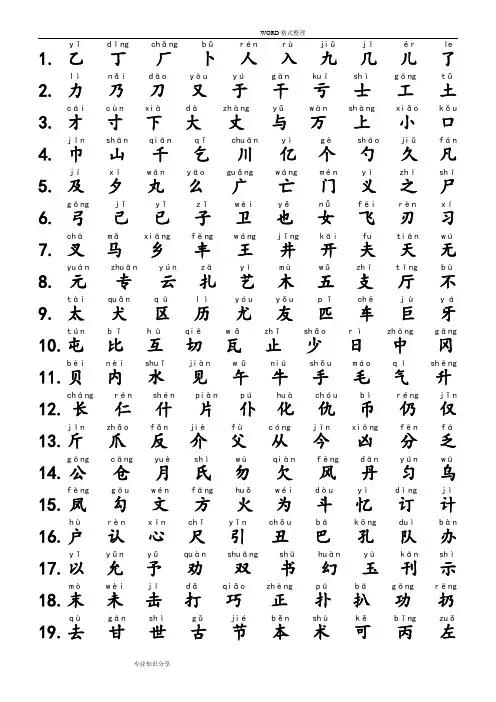 WORD 格式整理
yǐ dīng chǎng bǔ rén rù jiǔ jǐ ér le
1. 乙 丁 厂 卜 人 入 九 几 儿 了
lì nǎi dāo yòu yú gàn kuī shì gōng tǔ
2. 力 乃 刀 又 于 干 亏 士 工 土
cái cùn xià dà zhàng yǔ wàn shàng xiǎo kǒu
3. 才 寸 下 大 丈 与 万 上 小 口
jīn shān qiān qǐ chuān yì gè sháo jiǔ fán
4. 巾 山 千 乞 川 亿 个 勺 久 凡
jí xī wán yāo guǎng wáng mén yì zhī shī
5. 及 夕 丸 么 广 亡 门 义 之 尸
gōng jǐ yǐ zǐ wèi yě nǚ fēi rèn xí
6. 弓 己 已 子 卫 也 女 飞 刃 习
chā mǎ xiāng fēng wáng jǐng kāi fu tiān wú
7. 叉 马 乡 丰 王 井 开 夫 天 无
yuán zhuān yún zā yì mù wǔ zhī tīng bù
8. 元 专 云 扎 艺 木 五 支 厅 不
tài quǎn qū lì yóu yǒu pǐ chē jù yá
9. 太 犬 区 历 尤 友 匹 车 巨 牙
tún bǐ hù qiē wǎ zhǐ shǎo rì zhōng gāng
10. 屯 比 互 切 瓦 止 少 日 中 冈
bèi nèi shuǐ jiàn wǔ niú shǒu máo qì shēng
11. 贝 内 水 见 午 牛 手 毛 气 升
cháng rén shén piàn pú huà chóu bì réng jǐn
12. 长 仁 什 片 仆 化 仇 币 仍 仅
jīn zhǎo fǎn jiè fù cóng jīn xiōng fēn fá
13. 斤 爪 反 介 父 从 今 凶 分 乏
gōng cāng yuè shì wù qiàn fēng dān yún wū
14. 公 仓 月 氏 勿 欠 风 丹 匀 乌
fèng gōu wén fāng huǒ wéi dòu yì dìng jì
15. 凤 勾 文 方 火 为 斗 忆 订 计
hù rèn xīn chǐ yǐn chǒu bā kǒng duì bàn
16. 户 认 心 尺 引 丑 巴 孔 队 办
yǐ yǔn yǔ quàn shuāng shū huàn yù kān shì
17. 以 允 予 劝 双 书 幻 玉 刊 示
mò wèi jī dǎ qiǎo zhèng pū bā gōng rēng
18. 末 未 击 打 巧 正 扑 扒 功 扔
qù gān shì gǔ jié běn shù kě bǐng zuǒ
19. 去 甘 世 古 节 本 术 可 丙 左
专业知识分享